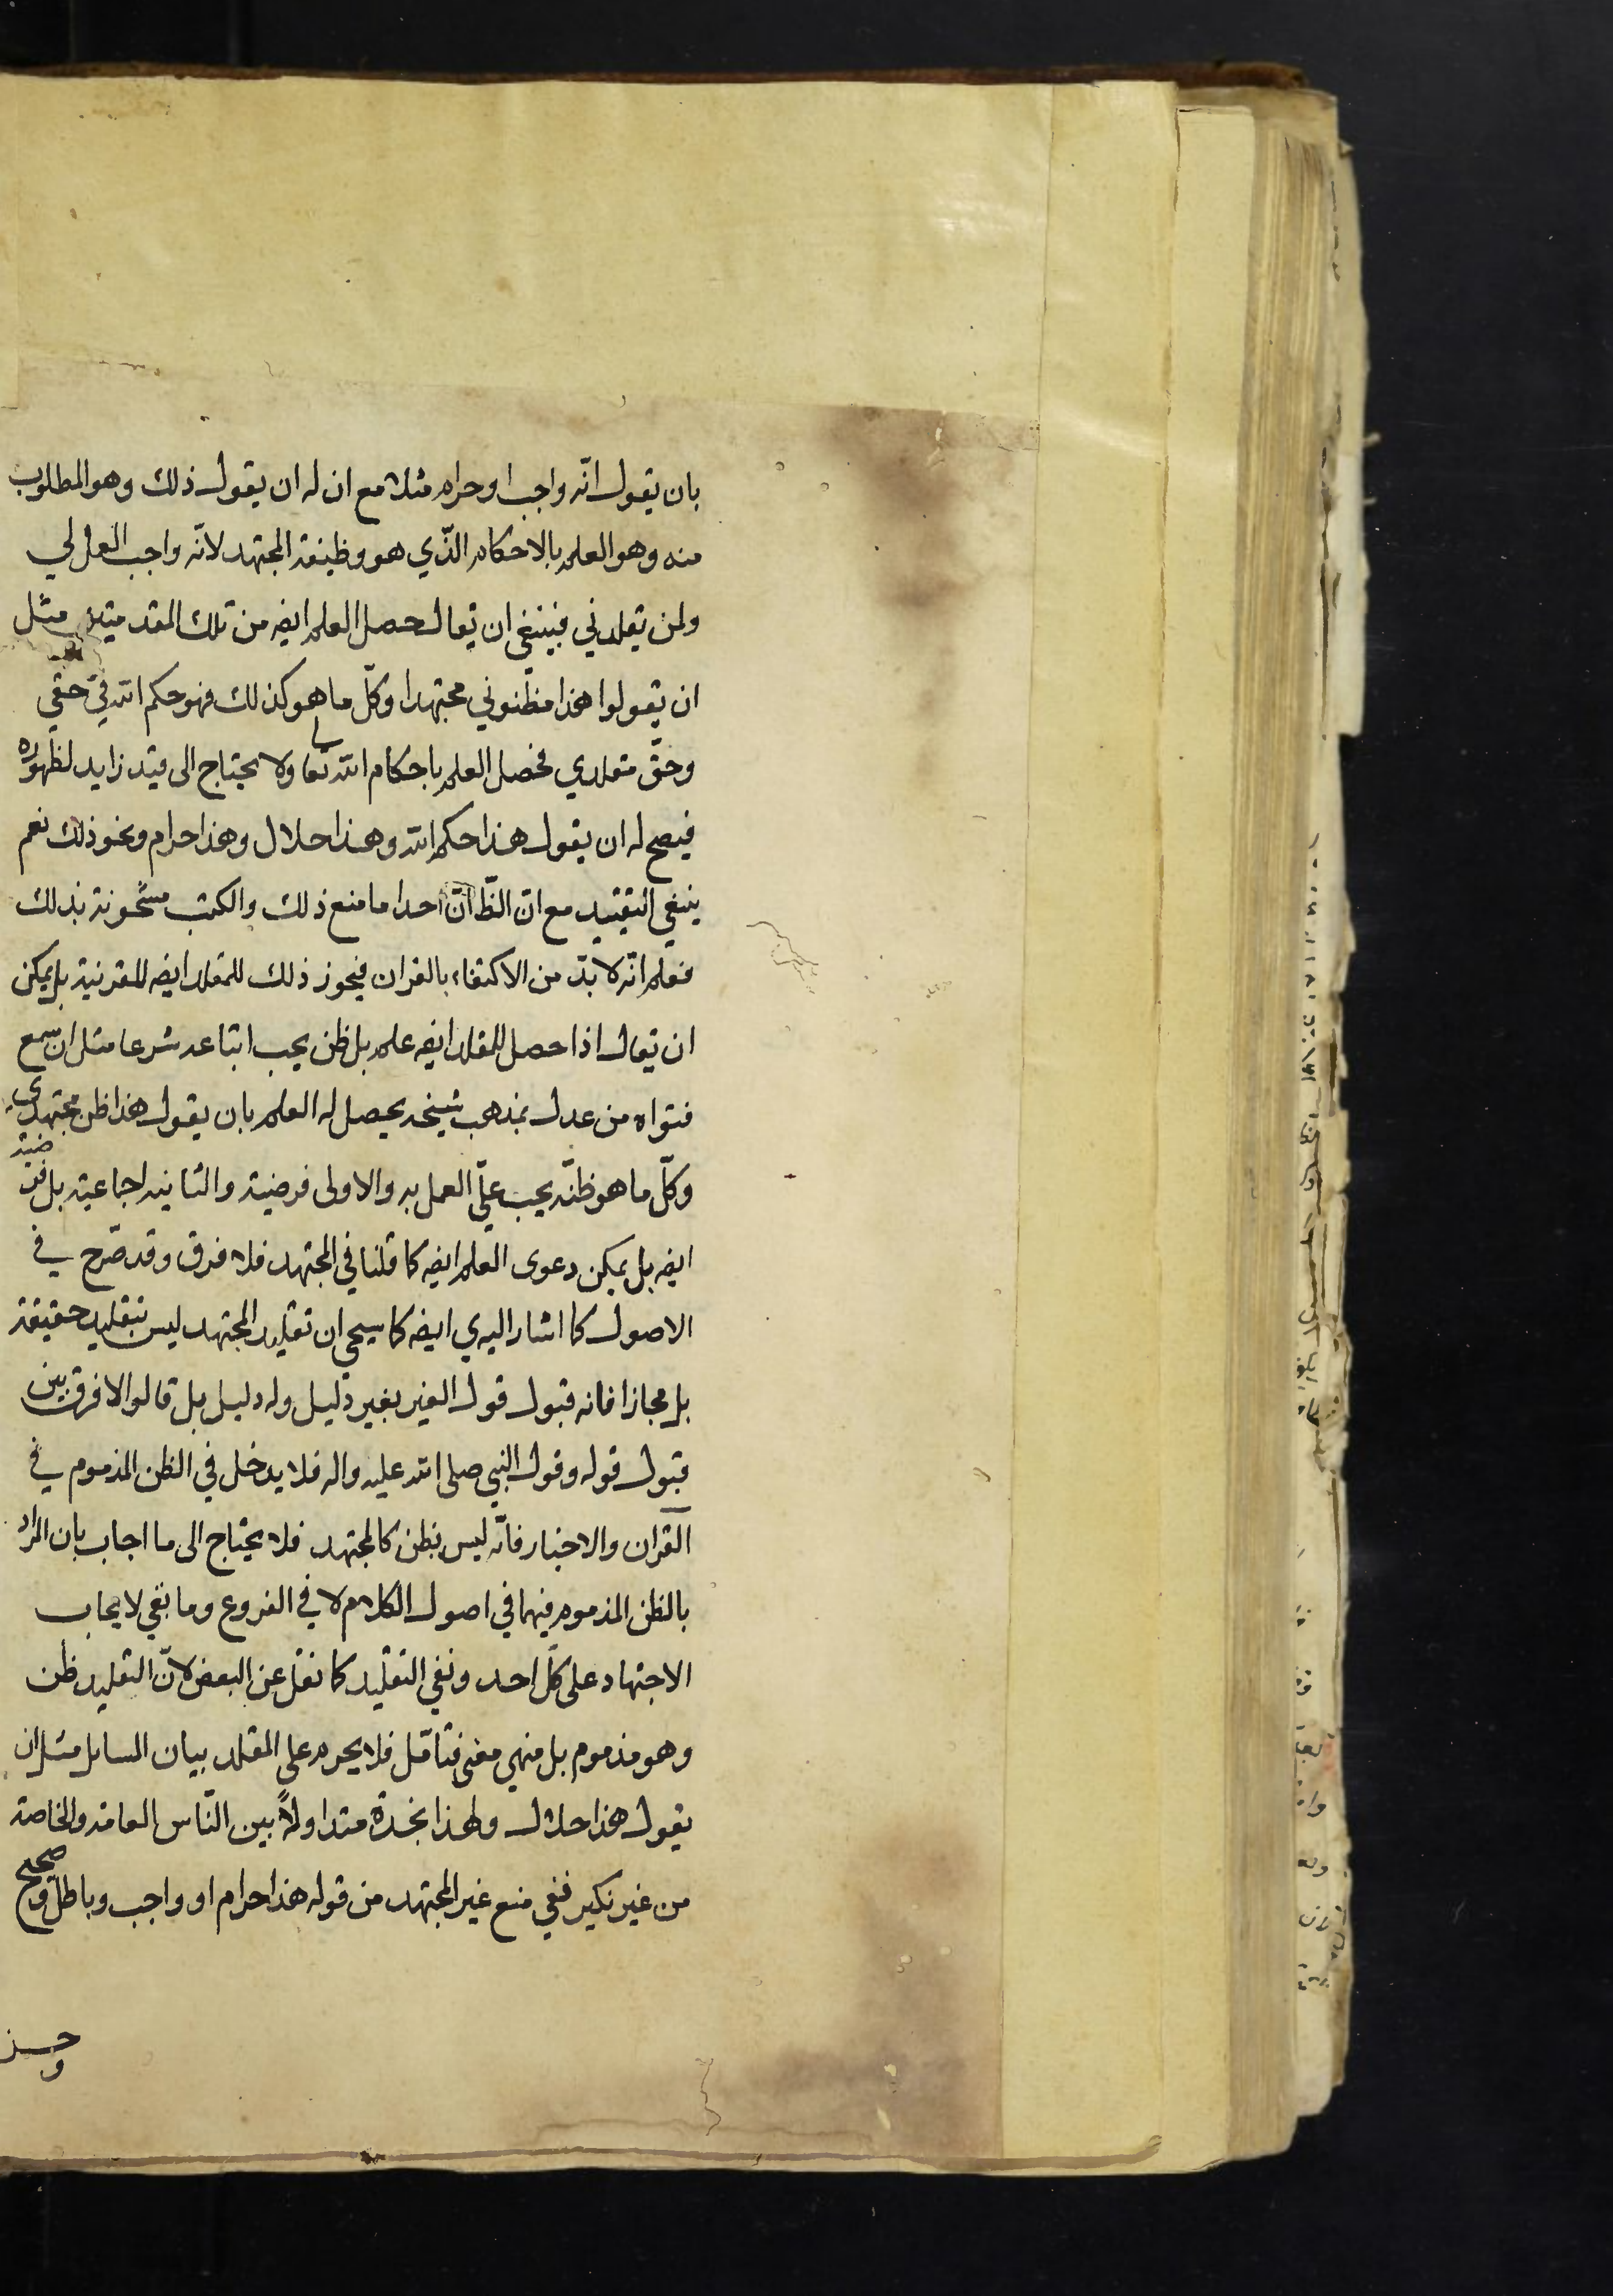 بان يقول انّه واجب او حرام مثلا مع ان له ان يقول ذلك وهو المطلوب
منه وهو العلم بالاحكام الذّي هو وظيفة المجتهد لانّه واجب العمل لي
ولمن تقلدني فينبغي ان يقال حصل العلم ايضه من تلك المقدمتين مثل
ان يقولوا هذا مظنوني مجتهدا وكلّ ما هو كذلك فهو حكم الله في حقي
وحقّ مقلدي فحصل العلم باحكام الله تعا ولا يحتاج الى قيد زايد لظهوره
فيصح له ان يقول هذا حكم الله وهذا حلال وهذا حرام ونحو ذلك نعم
ينبغي التقييد مع ان الظّ انّ احدا ما منع ذلك والكتب مشحونة بذلك
فعلم انّه لا بدّ من الاكتفاء بالقران فيجوز ذلك للمقلد ايضه للقرنية بل يمكن
ان يقال اذا حصل للمقلد ايضه علم بل ظن يجب اتباعه شرعا مثل ان سمع
فتواه من عدل بمذهب شيخه يحصل له العلم بان يقول هذا ظن مجتهدي
وكلّ ما هو ظنّه يجب عليّ العمل به والاولى فرضية والثانيه اجماعية بل فرضية
ايضه بل يمكن دعوى العلم ايضه كما قلنا في المجتهد فلا فرق وقد صّرح في
الاصول كما اشار اليه ي ايضه كما سيجي ان تقليد المجتهد ليس بتقليد حقيقة
بل مجازا فانه قبول قول الغير بغير دليل وله دليل بل قالوا لا فرق بين
قبول قوله وقول النبي صلى الله عليه واله فلا يدخل في الظن المذموم في
القران والاخبار فانّه ليس بظن كالمجتهد فلا يحتاج الى ما اجاب بان المراد
بالظن المذموم فيهما في اصول الكلام لا في الفروع وما بقي لايجاب
الاجتهاد على كل احد ونفي التقليد كما نقل عن البعض لانّ التقليد ظن
وهو مذموم بل منهي معنى فتامّل فلا يحرم على المقلد بيان المسايل مثل ان
يقول هذا حلال ولهذا نجده متداولاً بين النّاس العامة والخاصة
من غير نكير ففي منع غير المجتهد من قوله هذا حرام او واجب وباطل وصحيح